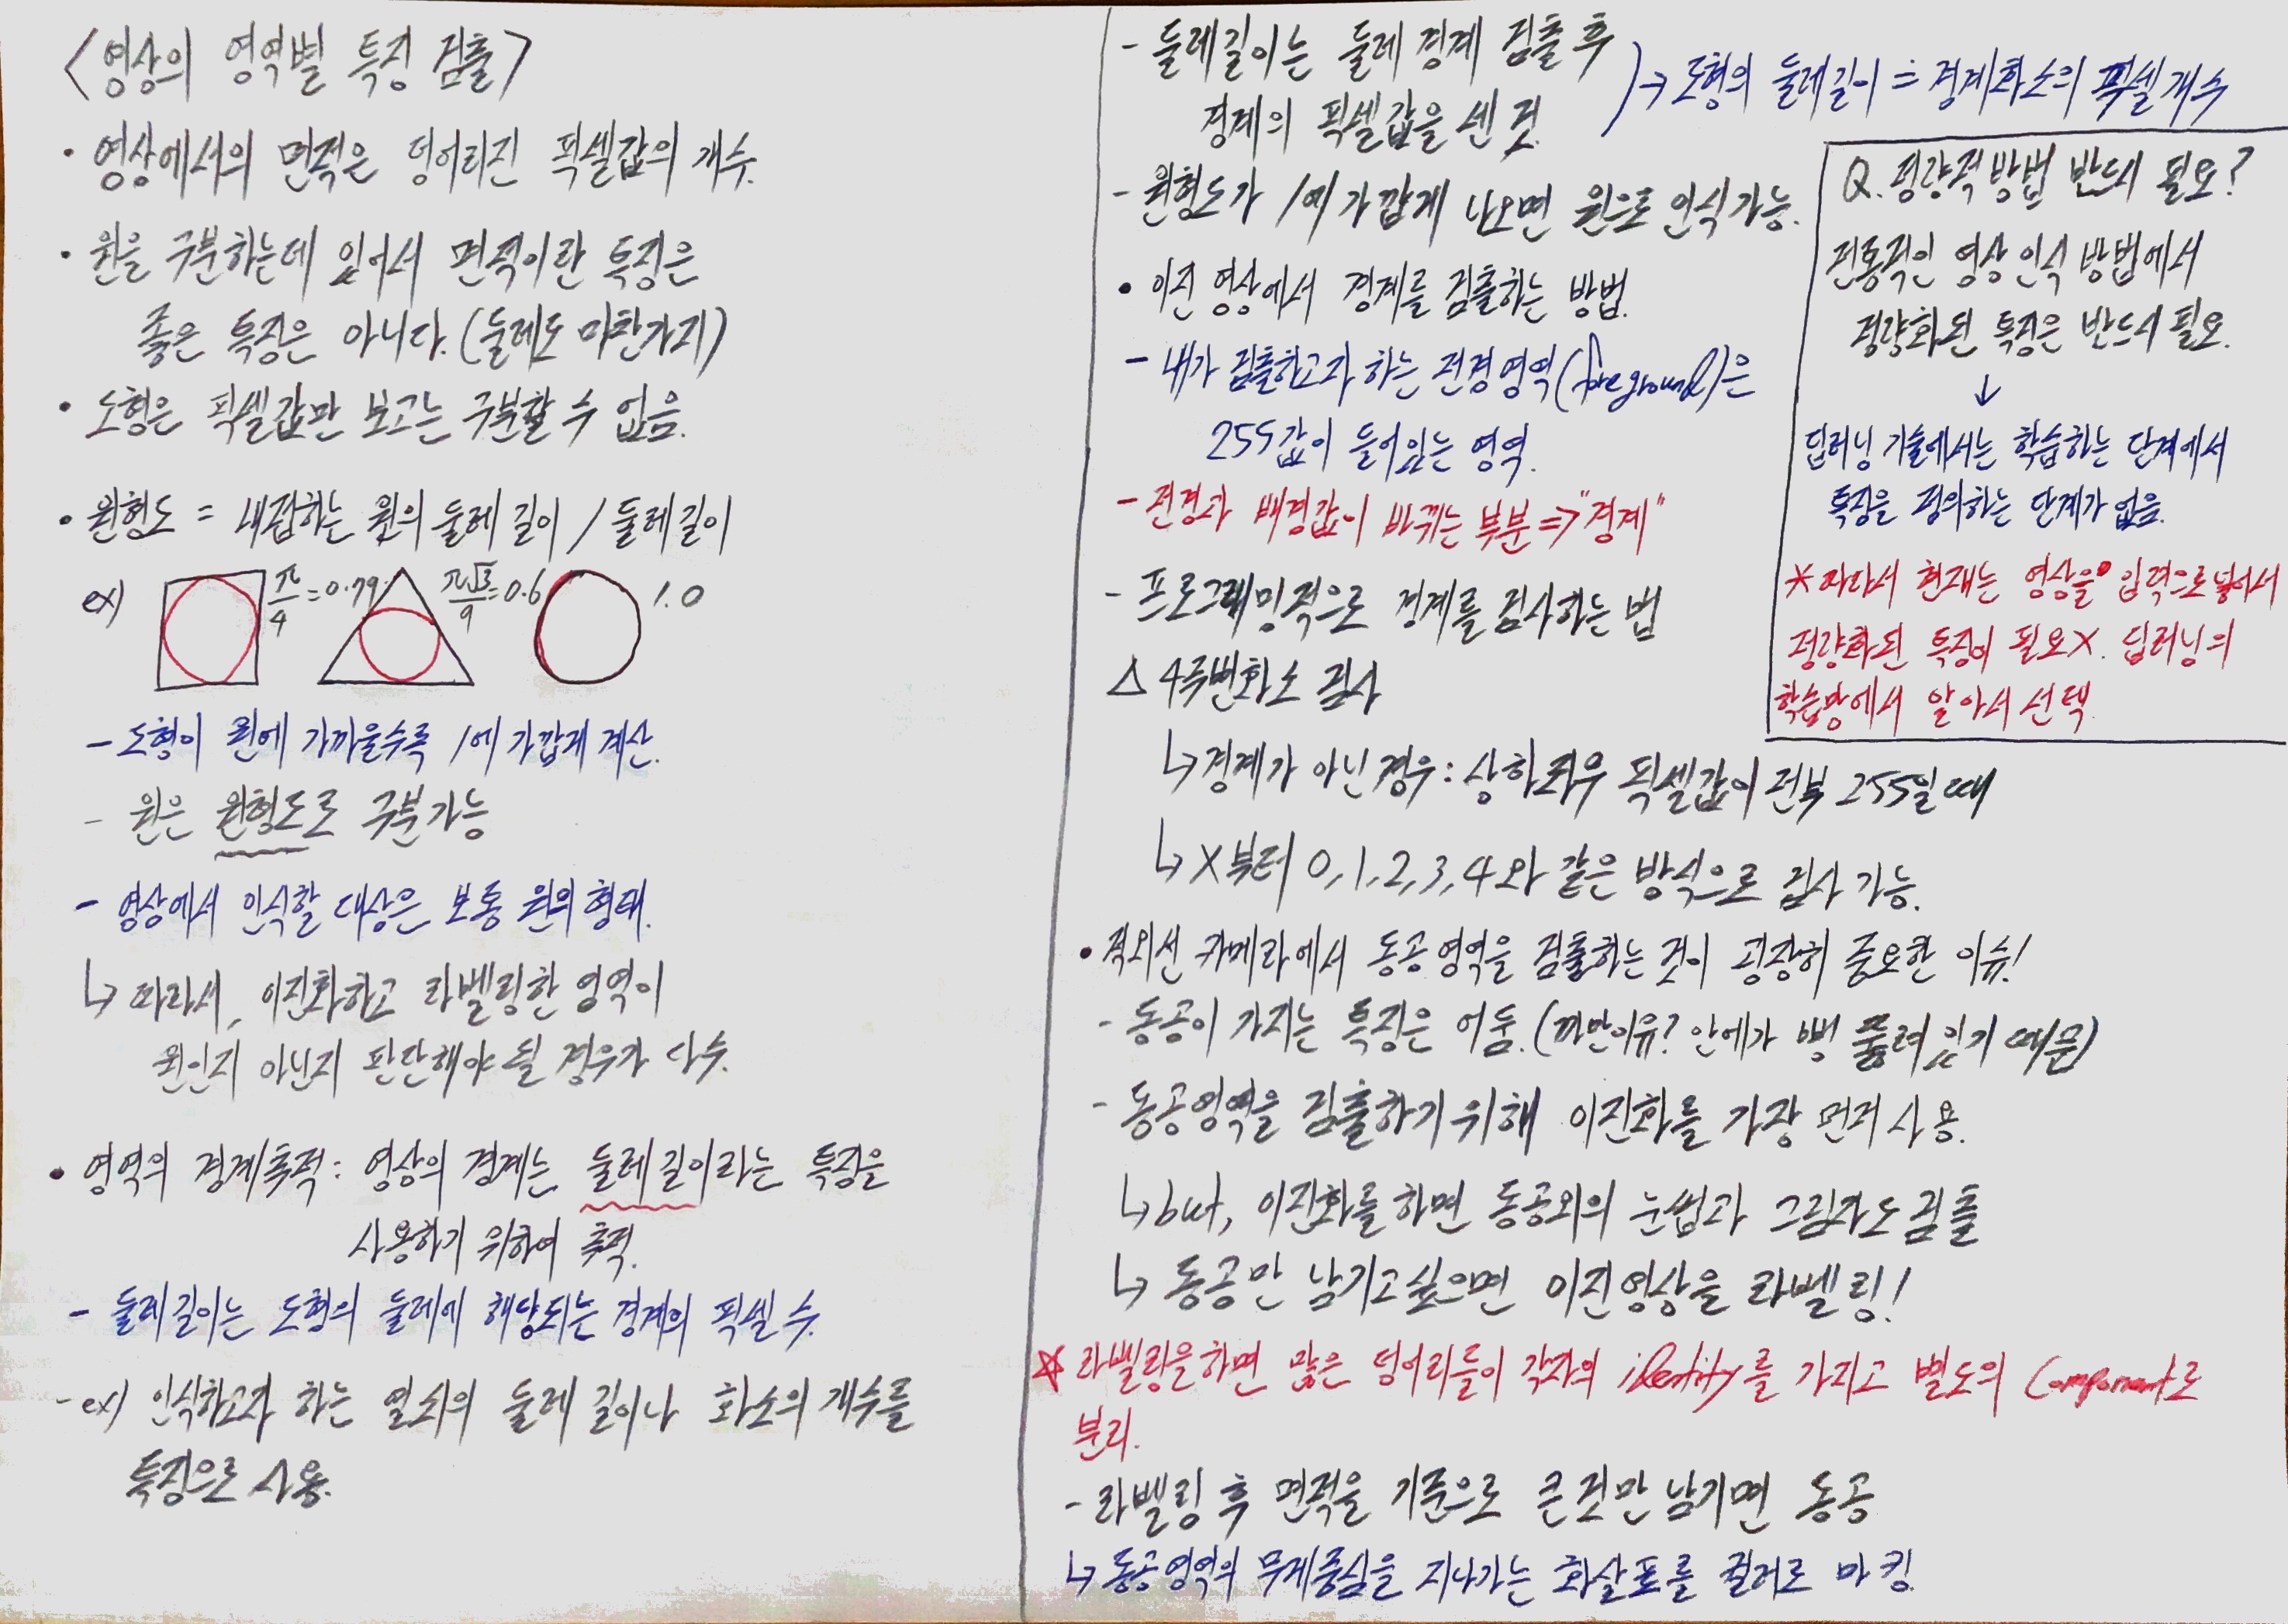 <영상의 영역별 특징 검출>
• 영상에서의 면적은 덩어리진 픽셀값의 개수.
• 원을 구분하는데 있어서 면적이란 특징은
좋은 특징은 아니다. (둘레도 마찬가지)
• 도형은 픽셀값만 보고는 구분할 수 없음.
• 원형도 = 내접하는 원의 둘레 길이 / 둘레길이
ex) π/4 = 0.79 π√3/9 = 0.6 1.0
- 도형이 원에 가까울수록 1에 가깝게 계산.
- 원은 원형도로 구분가능
- 영상에서 인식할 대상은 보통 원의 형태.
↳ 따라서, 이진화하고 라벨링한 영역이
원인지 아닌지 판단해야 될 경우가 다수.
• 영역의 경계추적: 영상의 경계는 둘레길이라는 특징을
사용하기 위하여 추적.
- 둘레길이는 도형의 둘레에 해당되는 경계의 픽셀 수.
- ex) 인식하고자 하는 열쇠의 둘레 길이나 화소의 개수를
특징으로 사용.
- 둘레길이는 둘레 경계 검출 후
경계의 픽셀값을 센 것.
→ 도형의 둘레길이 = 경계화소의 픽셀개수
- 원형도가 1에 가깝게 나오면 원으로 인식가능.
• 이진 영상에서 경계를 검출하는 방법.
- 내가 검출하고자 하는 전경영역(foreground)은
255값이 들어있는 영역.
- 전경과 배경값이 바뀌는 부분 => "경계"
- 프로그래밍적으로 경계를 검사하는 법
△ 4주변화소 검사
↳ 경계가 아닌경우: 상하좌우 픽셀값이 전부 255일 때
↳ X부터 0,1,2,3,4와 같은 방식으로 검사 가능.
• 적외선 카메라에서 동공영역을 검출하는 것이 굉장히 중요한 이슈!
- 동공이 가지는 특징은 어둠. (까만이유? 안에가 뻥 뚫려있기 때문)
- 동공영역을 검출하기 위해 이진화를 가장 먼저 사용.
↳ but, 이진화를 하면 동공외의 눈썹과 그림자도 검출
↳ 동공만 남기고 싶으면 이진영상을 라벨링!
☆ 라벨링을하면 많은 덩어리들이 각자의 identity를 가지고 별도의 Component로
분리.
- 라벨링 후 면적을 기준으로 큰 것만 남기면 동공
↳ 동공영역의 무게중심을 지나가는 화살표를 컬러로 마킹.
Q. 정량적 방법 반드시 필요?
전통적인 영상 인식 방법에서
정량화된 특징은 반드시 필요.
↓
딥러닝 기술에서는 학습하는 단계에서
특징을 정의하는 단계가 없음.
* 따라서 현재는 영상을 입력으로 넣어서
정량화된 특징이 필요X. 딥러닝의
학습망에서 알아서 선택